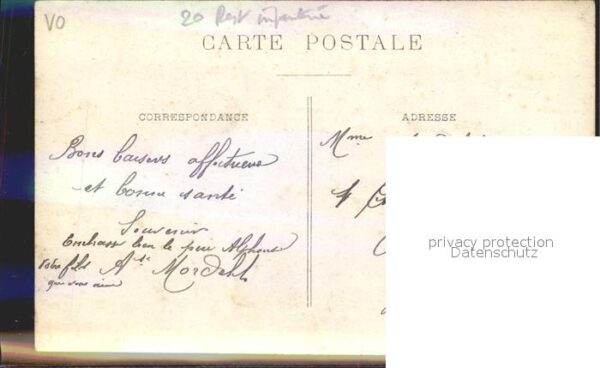 VO
20 Regt infanterie
CARTE POSTALE
CORRESPONDANCE
ADRESSE
Bons baisers affectueux
et bonne santé
Souvenir
Embrasse bien le petit Alphonse
Votre fils
qui vous aime
Mme
privacy protection
Datenschutz